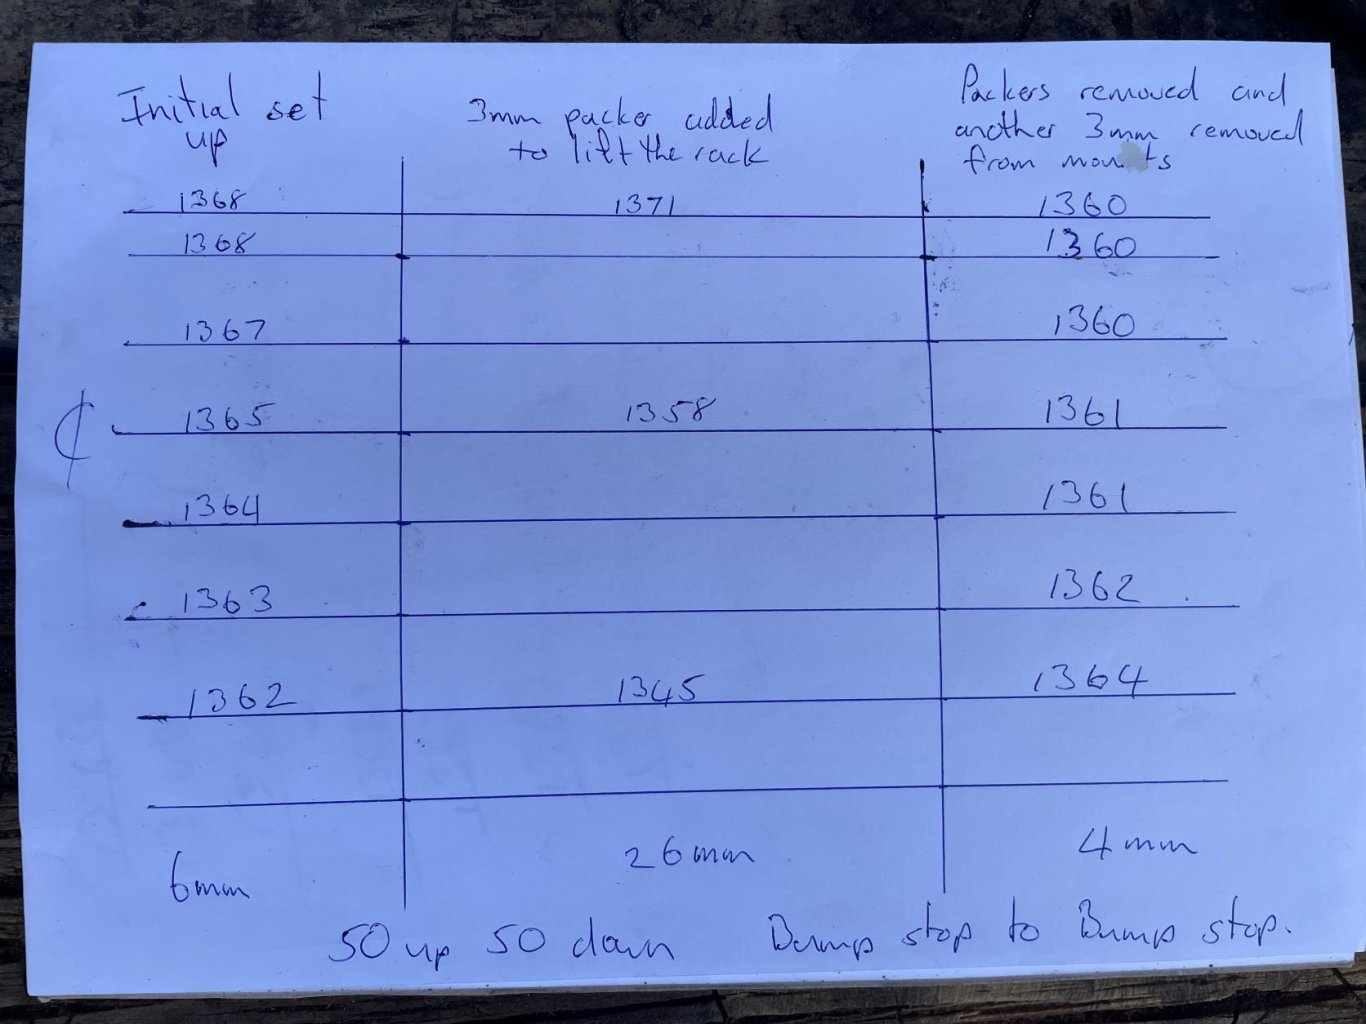 Initial set
up
3mm packer added
to lift the rack
Packers removed and
another 3mm removed
from mounts
1368 1371 1360
1368 1360
1367 1360
₵ 1365 1358 1361
1364 1361
1363 1362
1362 1345 1364
6mm 26mm 4mm
50 up 50 down Bump stop to Bump stop.